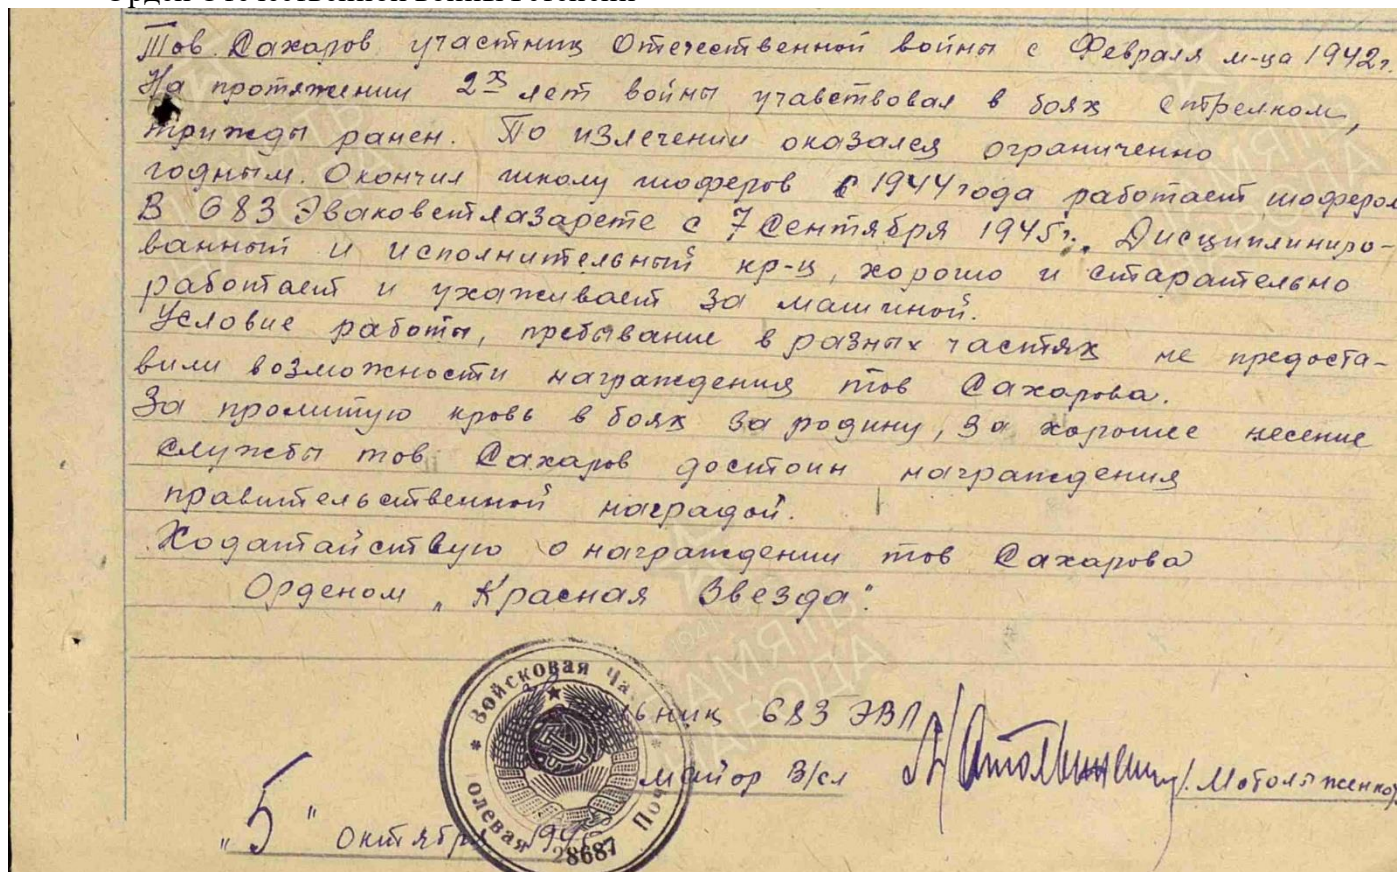 Орден Отечественной войны II степени
Тов. Сахаров участник Отечественной войны с Февраля м-ца 1942г.
На протяжении 2х лет войны учавствовал в боях стрелком,
трижды ранен. По излечении оказался ограниченно
годным. Окончил школу шоферов с 1944 года работает шофером
В 683 Эваковетлазарете с 7 Сентября 1945г. Дисциплиниро-
ванный и исполнительный кр-ц, хорошо и старательно
работает и ухаживает за машиной.
Условие работы, пребывание в разных частях не предоста-
вили возможности награждения тов Сахарова.
За пролитую кровь в боях за родину, за хорошее несение
службы тов Сахаров достоин награждения
правительственной наградой.
Ходатайствую о награждении тов Сахарова
Орденом „Красная Звезда".
ьник 683 ЭВЛ
майор В/сл
"5" октября 194
Войсковая Ча
олевая Поч
28687
ПАМЯТЬ НАРОДА